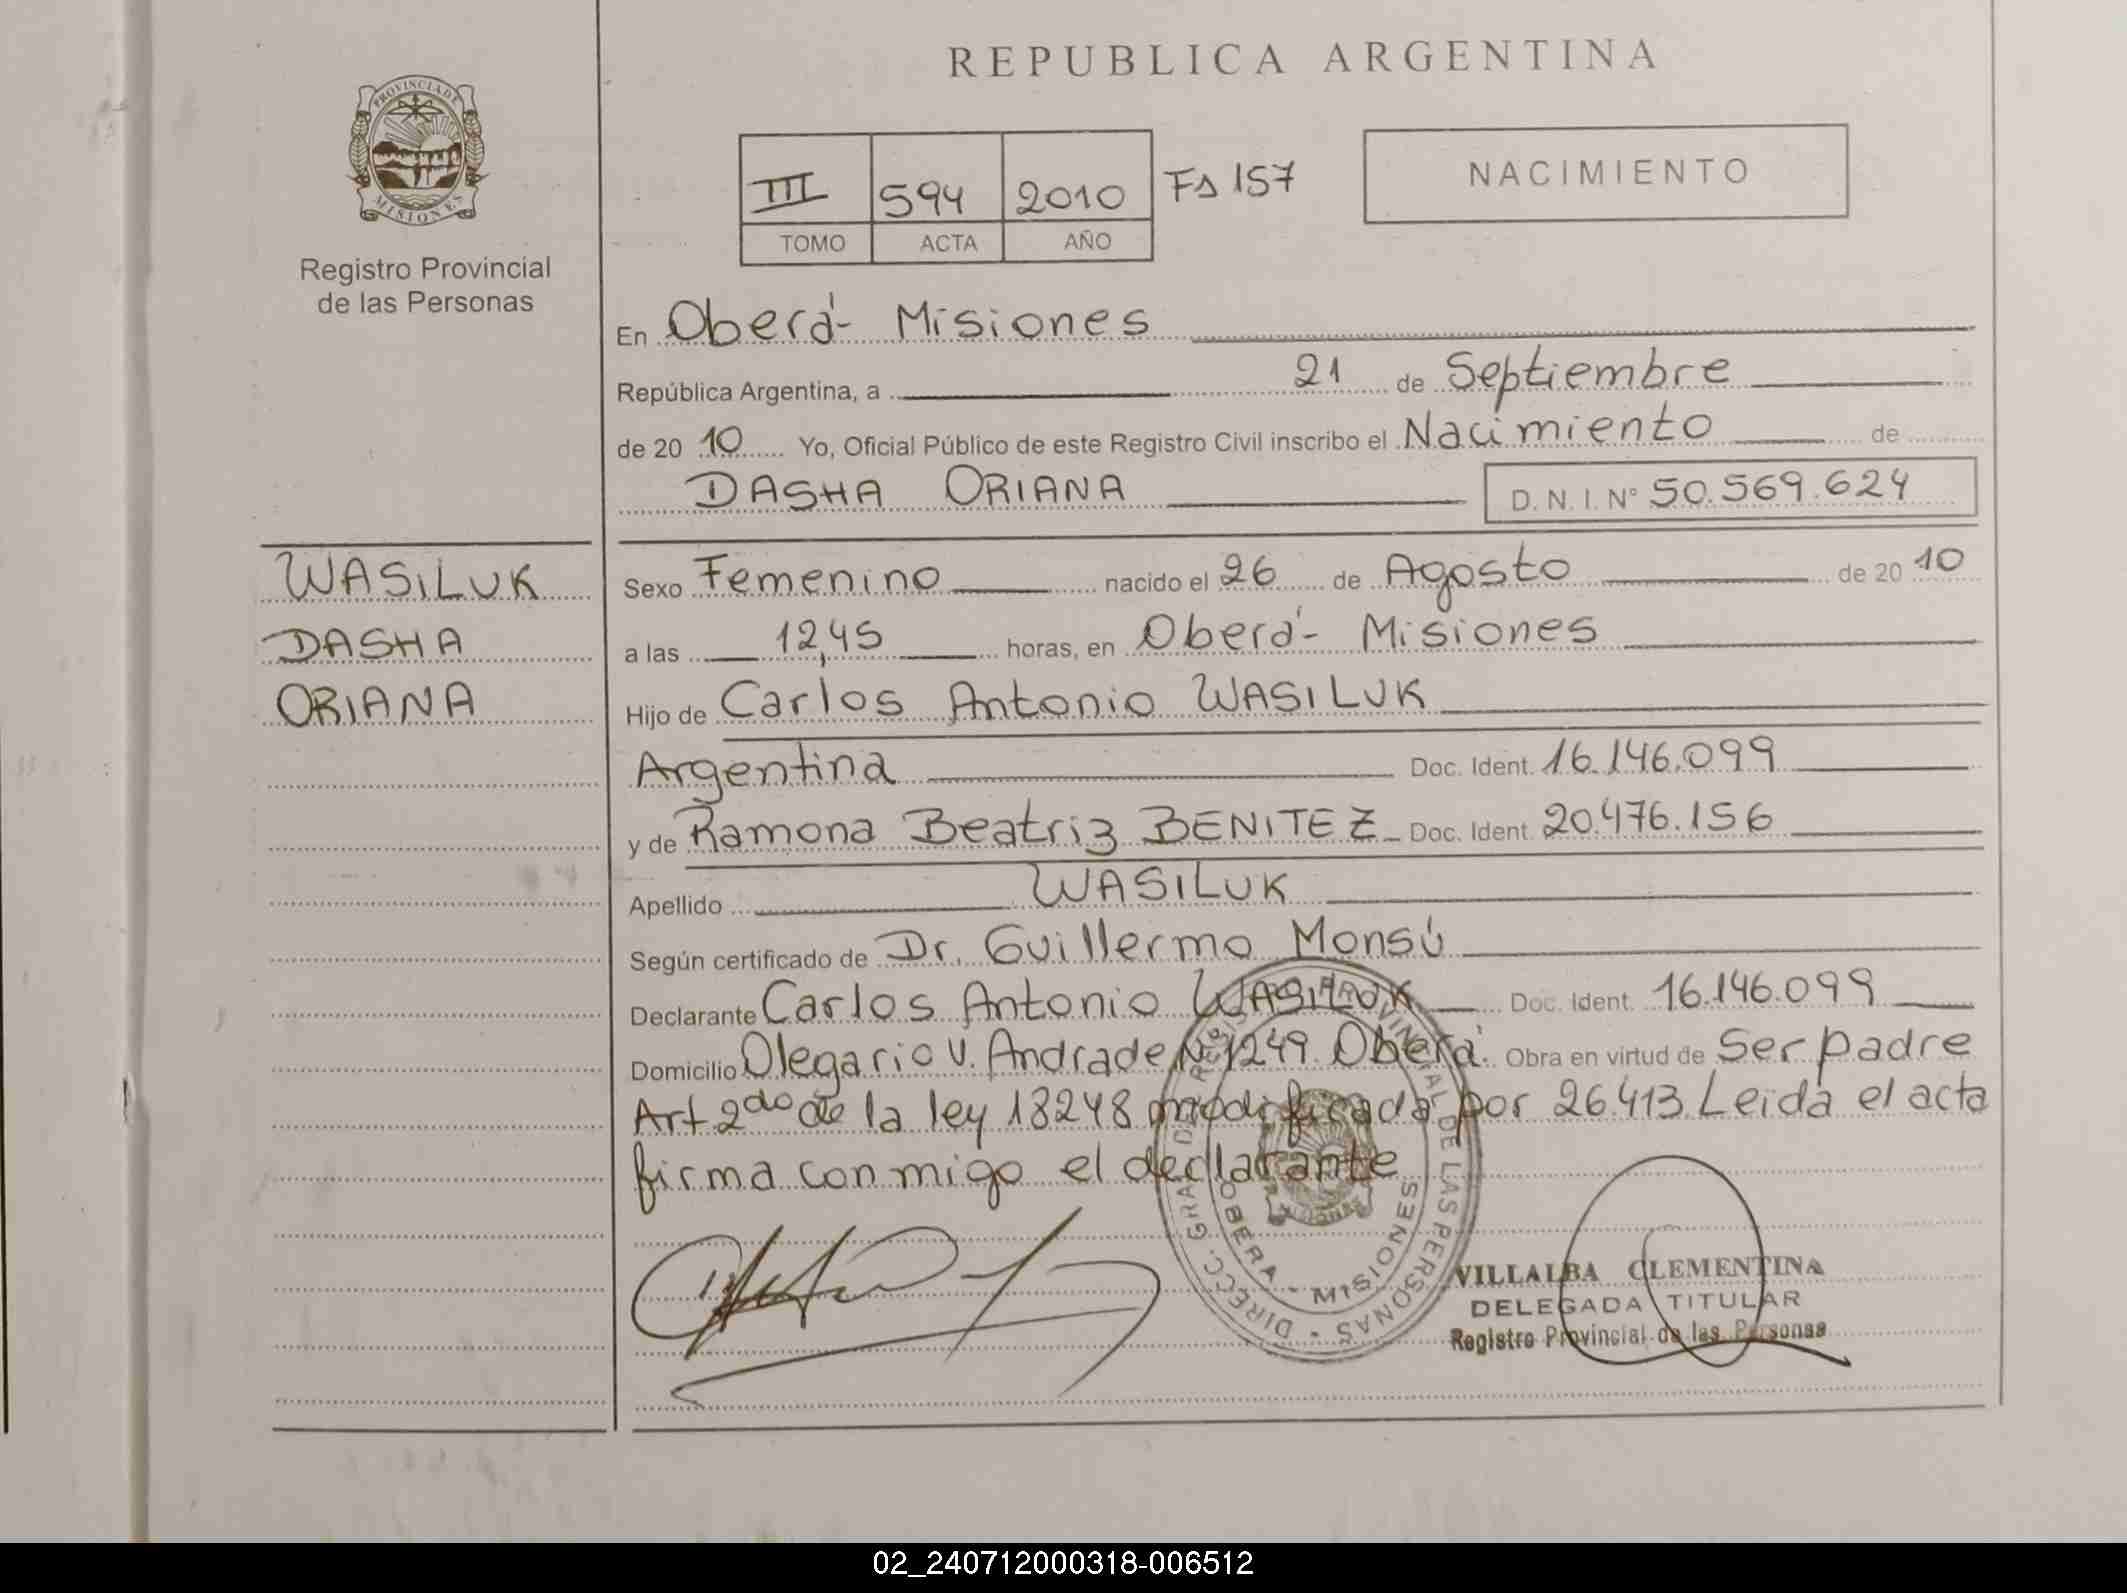 REPUBLICA ARGENTINA
PROVINCIA DE
MISIONES
Registro Provincial
de las Personas
III 594 2010 Fs 157
TOMO ACTA AÑO
NACIMIENTO
En Oberá - Misiones
República Argentina, a 21 de Septiembre
de 20 10 Yo, Oficial Público de este Registro Civil inscribo el Nacimiento de
DASHA ORIANA D. N. I. N° 50.569.624
WASILUK
DASHA
ORIANA
Sexo Femenino nacido el 26 de Agosto de 20 10
a las 12,45 horas, en Oberá - Misiones
Hijo de Carlos Antonio WASILUK
Argentina Doc. Ident. 16.146.099
y de Ramona Beatriz BENITEZ Doc. Ident. 20.476.156
Apellido WASILUK
Según certificado de Dr. Guillermo Monsú
Declarante Carlos Antonio WASILUK Doc. Ident. 16.146.099
Domicilio Olegario V. Andrade N° 1249 Oberá. Obra en virtud de Ser padre
Art 2do de la ley 18248 modificada por 26.413 Leida el acta
firma con migo el declarante
DIRECC. GRAL. DE REGISTRO PROVINCIAL DE LAS PERSONAS
OBERA - MISIONES
VILLALBA CLEMENTINA
DELEGADA TITULAR
Registro Provincial de las Personas
02_240712000318-006512